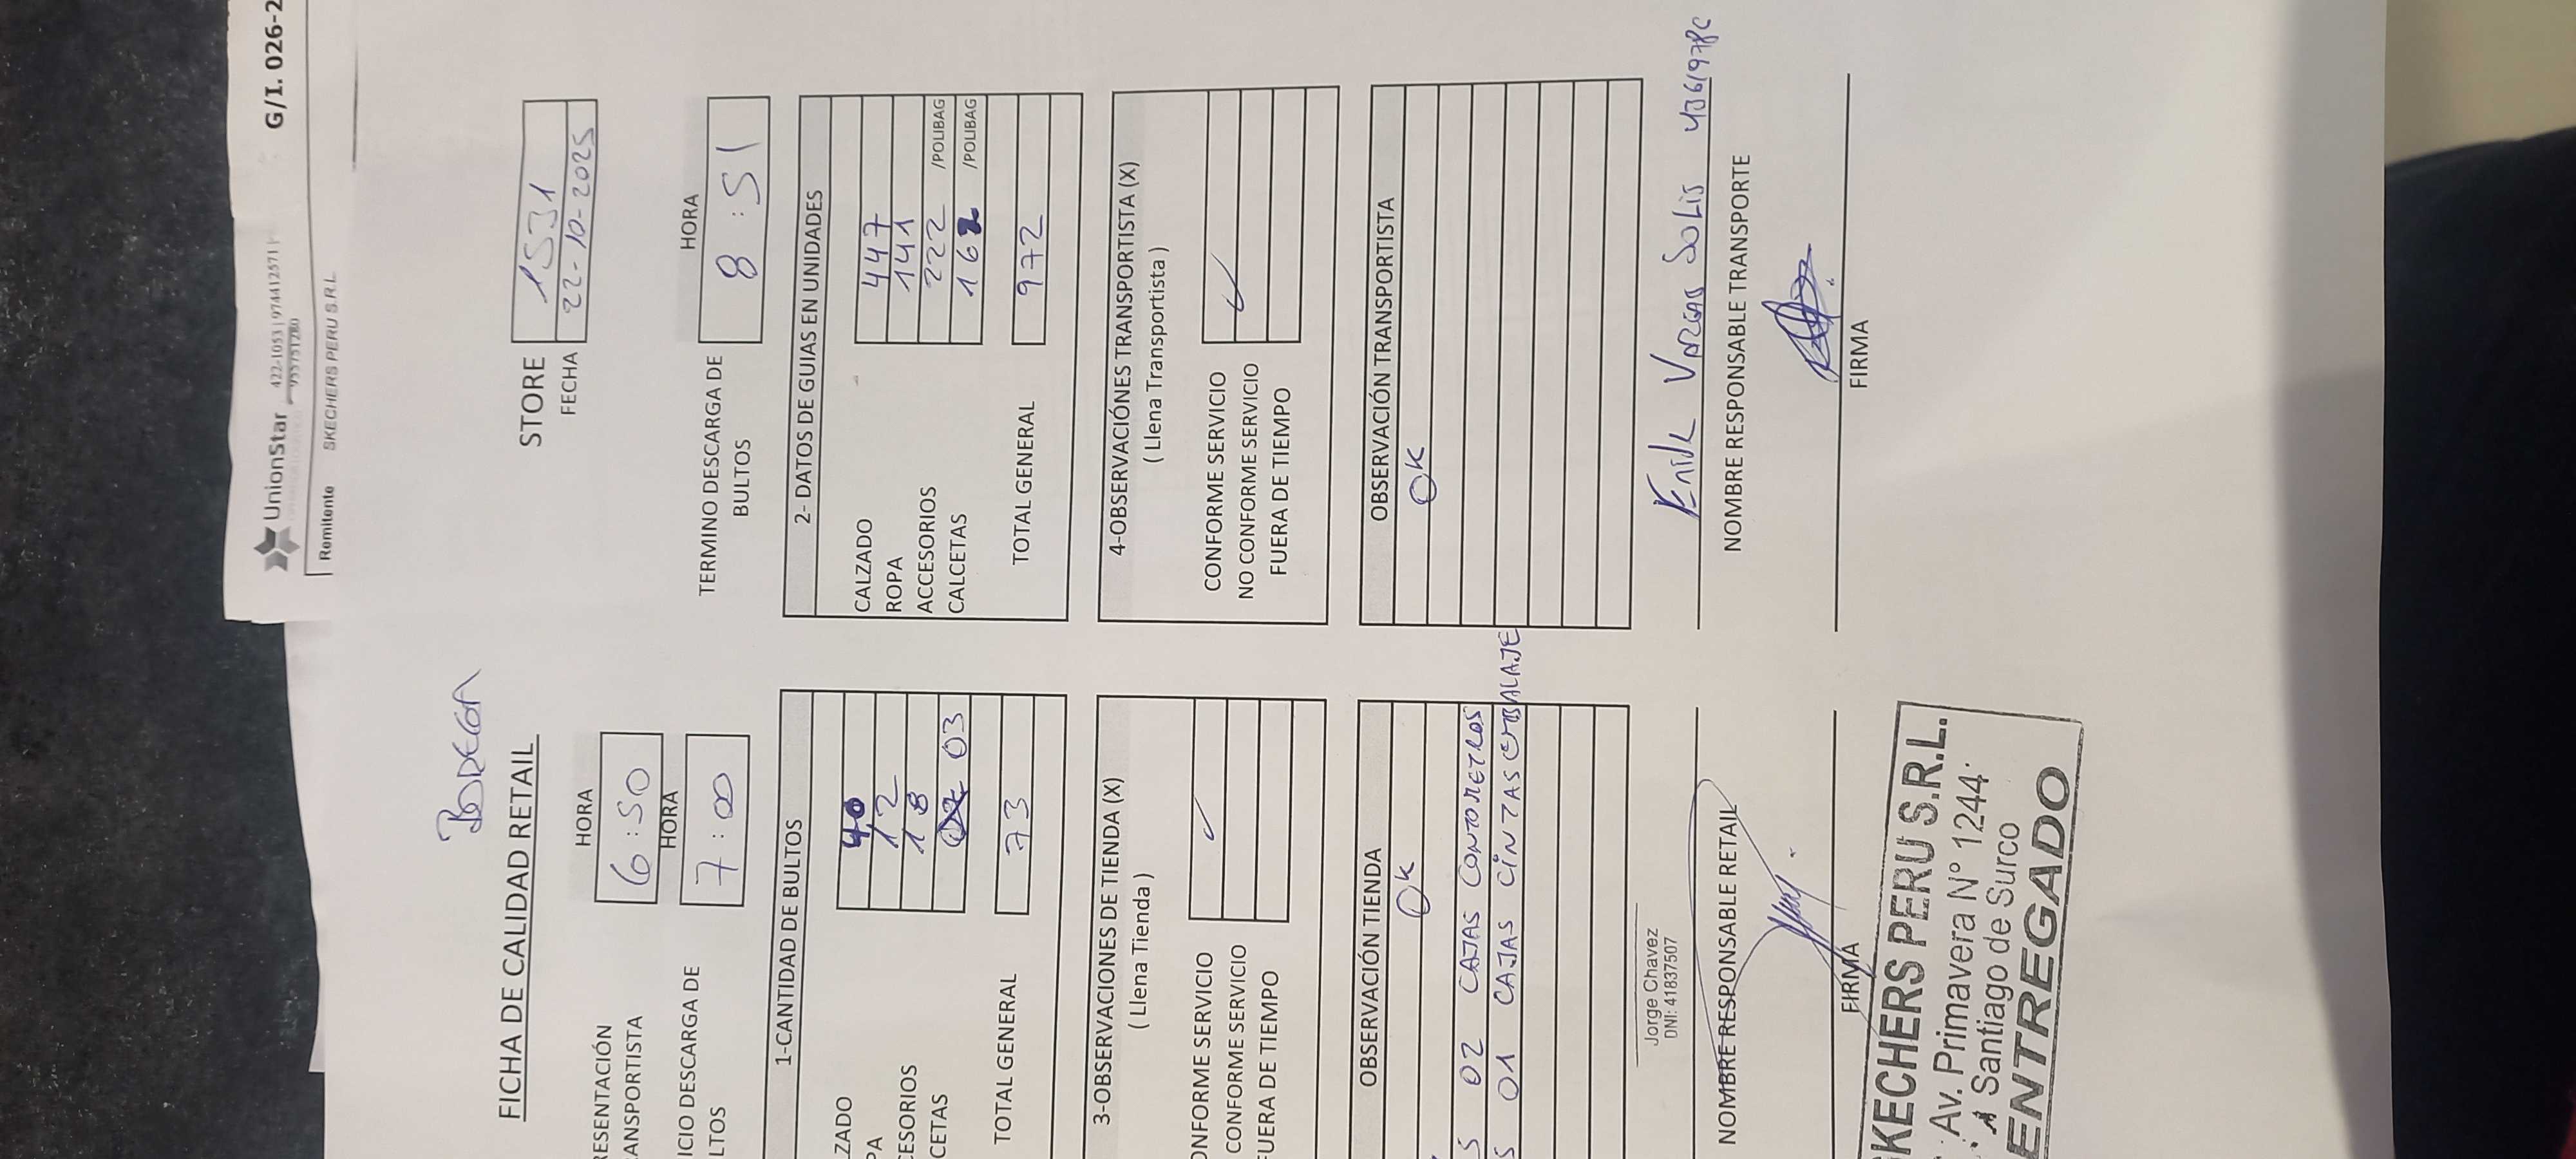 G/I. 026-2
UnionStar 422-1053 | 974412571
955751280
Remitente SKECHERS PERU S.R.L.
BODEGA
FICHA DE CALIDAD RETAIL
STORE 1531
FECHA 22-10-2025
HORA
RESENTACIÓN
ANSPORTISTA 6:50
HORA
ICIO DESCARGA DE
LTOS 7:00
HORA
TERMINO DESCARGA DE
BULTOS 8:51
1-CANTIDAD DE BULTOS
ZADO 40
PA 12
ESORIOS 18
CETAS 03
TOTAL GENERAL 73
2- DATOS DE GUIAS EN UNIDADES
CALZADO 447
ROPA 141
ACCESORIOS 222 /POLIBAG
CALCETAS 162 /POLIBAG
TOTAL GENERAL 972
3-OBSERVACIONES DE TIENDA (X)
( Llena Tienda )
ONFORME SERVICIO ✓
CONFORME SERVICIO
FUERA DE TIEMPO
4-OBSERVACIÓNES TRANSPORTISTA (X)
( Llena Transportista )
CONFORME SERVICIO ✓
NO CONFORME SERVICIO
FUERA DE TIEMPO
OBSERVACIÓN TIENDA
OK
S 02 CAJAS CONTOMETROS
S 01 CAJAS CINTAS EMBALAJE
OBSERVACIÓN TRANSPORTISTA
OK
Jorge Chavez
DNI: 41837507
NOMBRE RESPONSABLE RETAIL
FIRMA
VARGAS SOLIS
NOMBRE RESPONSABLE TRANSPORTE
FIRMA
KECHERS PERU S.R.L.
Av. Primavera N° 1244
Santiago de Surco
ENTREGADO